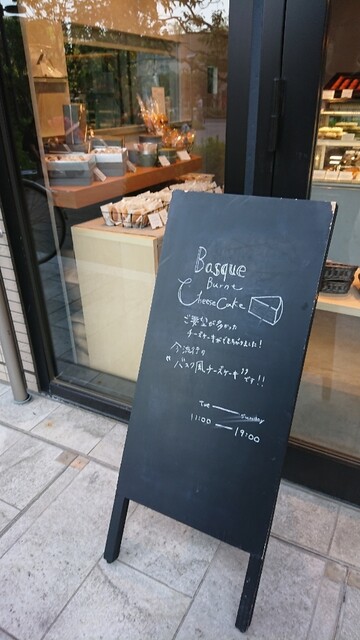 Basque
Burne
CheeseCake
ご要望が多かった
チーズケーキができあがりました!
今流行の
"バスク風チーズケーキ"です!!
Tue — Sunday
11:00 — 19:00